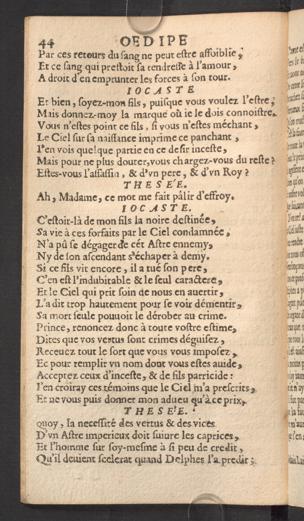 44 OEDIPE
Par ces retours du sang ne peut estre affoiblie,
Et ce sang qui prestoit sa tendresse à l'amour,
A droit d'en emprunter les forces à son tour.
IOCASTE.
Et bien, soyez-mon fils, puisque vous voulez l'estre,
Mais donnez-moy la marque où ie le dois connoistre.
Vous n'estes point ce fils, si vous n'estes méchant,
Le Ciel sur sa naissance imprime ce panchant,
I'en vois quelque partie en ce desir inceste,
Mais pour ne plus douter, vous chargez-vous du reste?
Estes-vous l'assassin, & d'vn pere, & d'vn Roy?
THESEE.
Ah, Madame, ce mot me fait pâlir d'effroy.
IOCASTE.
C'estoit-là de mon fils la noire destinée,
Sa vie à ces forfaits par le Ciel condamnée,
N'a pû se dégager de cét Astre ennemy,
Ny de son ascendant s'échaper à demy.
Si ce fils vit encore, il a tué son pere,
C'en est l'indubitable & le seul caractere,
Et le Ciel qui prit soin de nous en auertir,
L'a dit trop hautement pour se voir démentir,
Sa mort seule pouuoit le dérober au crime.
Prince, renoncez donc à toute vostre estime,
Dites que vos vertus sont crimes déguisez,
Receuez tout le sort que vous vous imposez,
Et pour remplir vn nom dont vous estes auide,
Acceptez ceux d'inceste, & de fils parricide:
I'en croiray ces témoins que le Ciel m'a prescrits,
Et ne vous puis donner mon adueu qu'à ce prix.
THESEE.
Quoy, la necessité des vertus & des vices
D'vn Astre imperieux doit suiure les caprices,
Et l'homme sur soy-mesme a si peu de credit,
Qu'il deuient scelerat quand Delphes l'a predit?